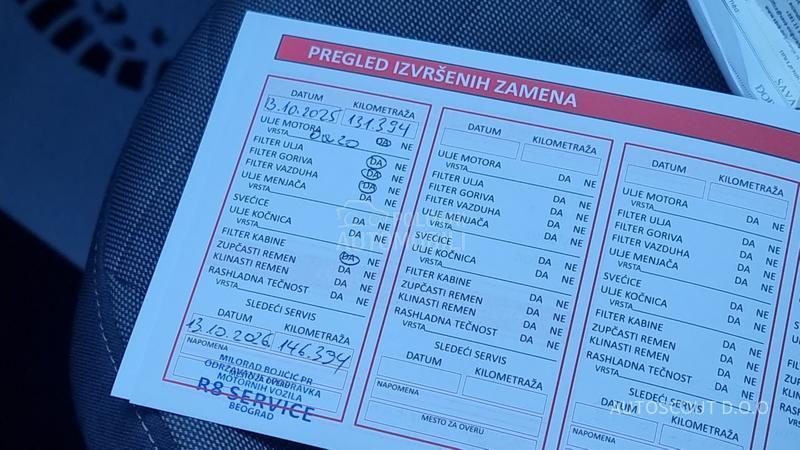 PREGLED IZVRŠENIH ZAMENA
DATUM KILOMETRAŽA
13.10.2025 131.394
ULJE MOTORA DA NE
VRSTA 0w20
FILTER ULJA DA NE
FILTER GORIVA DA NE
FILTER VAZDUHA DA NE
ULJE MENJAČA DA NE
VRSTA
SVEĆICE DA NE
ULJE KOČNICA DA NE
VRSTA
FILTER KABINE DA NE
ZUPČASTI REMEN DA NE
KLINASTI REMEN DA NE
RASHLADNA TEČNOST DA NE
VRSTA
SLEDEĆI SERVIS
DATUM KILOMETRAŽA
13.10.2026. 146.394
NAPOMENA
MILORAD BOJIČIĆ PR
ODRŽAVANJE I POPRAVKA
MOTORNIH VOZILA
R8 SERVICE
BEOGRAD
DATUM KILOMETRAŽA
ULJE MOTORA DA NE
VRSTA
FILTER ULJA DA NE
FILTER GORIVA DA NE
FILTER VAZDUHA DA NE
ULJE MENJAČA DA NE
VRSTA
SVEĆICE DA NE
ULJE KOČNICA DA NE
VRSTA
FILTER KABINE DA NE
ZUPČASTI REMEN DA NE
KLINASTI REMEN DA NE
RASHLADNA TEČNOST DA NE
VRSTA
SLEDEĆI SERVIS
DATUM KILOMETRAŽA
NAPOMENA
MESTO ZA OVERU
DATUM KILOMETRAŽA
ULJE MOTORA DA NE
VRSTA
FILTER ULJA DA NE
FILTER GORIVA DA NE
FILTER VAZDUHA DA NE
ULJE MENJAČA DA NE
VRSTA
SVEĆICE DA NE
ULJE KOČNICA DA NE
VRSTA
FILTER KABINE DA NE
ZUPČASTI REMEN DA
KLINASTI REMEN DA
RASHLADNA TEČNOST DA
VRSTA
SLEDEĆI SERVIS
DATUM KILOMETRAŽA
NAPOMENA
POLOVNI AUTOMOBILI
AUTOSCOUT D.O.O